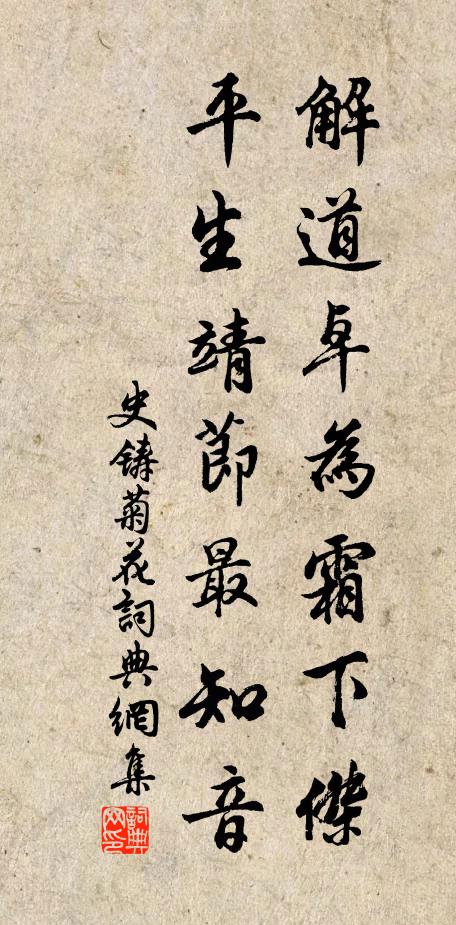 解道卓為霜下傑
平生靖節最知音
史鑄菊花詞典網集
詞典網印